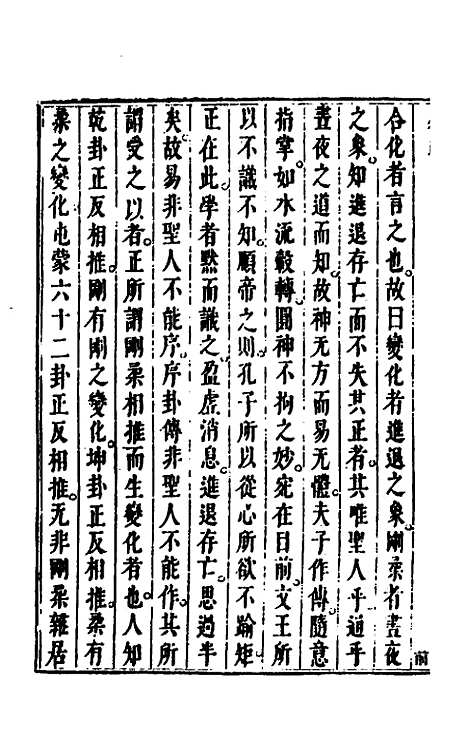 合化者言之也故曰變化者進退之象剛柔者晝夜
之象知進退存亡而不失其正者其唯聖人乎通乎
晝夜之道而知故神无方而易无體夫子作傳隨意
指掌如水流轂轉圓神不拘之妙宛在目前文王所
以不識不知順帝之則孔子所以從心所欲不踰矩
正在此學者黙而識之盈虛消息進退存亡思過半
矣故易非聖人不能序序卦傳非聖人不能作其所
謂受之以者正所謂剛柔相推而生變化者也人知
乾卦正反相推剛有剛之變化坤卦正反相推柔有
柔之變化屯蒙六十二卦正反相推无非剛柔雜居